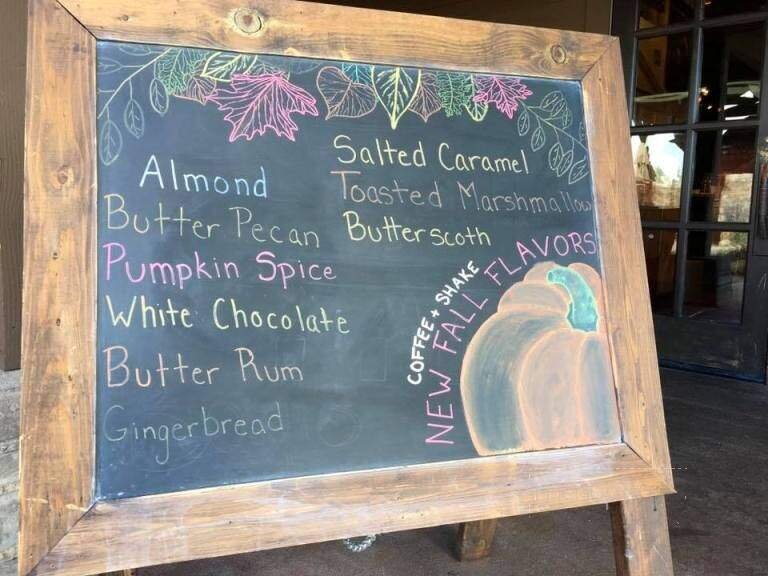 Almond
Butter Pecan
Pumpkin Spice
White Chocolate
Butter Rum
Gingerbread
Salted Caramel
Toasted Marshmallow
Butterscoth
COFFEE + SHAKE
NEW FALL FLAVORS